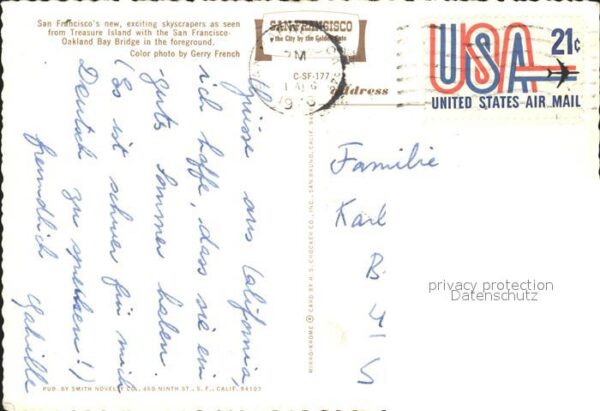 San Francisco's new, exciting skyscrapers as seen
from Treasure Island with the San Francisco-
Oakland Bay Bridge in the foreground.
Color photo by Gerry French
SAN FRANCISCO
the City by the Golden Gate
C-SF-177
PM
Address
USA 21c
UNITED STATES AIR MAIL
Grüsse aus California,
ich hoffe, dass sie ein
gutes Sommer haben.
(Es ist schwer für mich
Deutsch zu sprechen!)
freundlich
Familie
Karl
B
privacy protection
Datenschutz
MIRRO-KROME ® CARD BY H. S. CROCKER CO., INC., SAN BRUNO, CALIF.
PUB. BY SMITH NOVELTY CO., 460 NINTH ST., S. F., CALIF. 94103